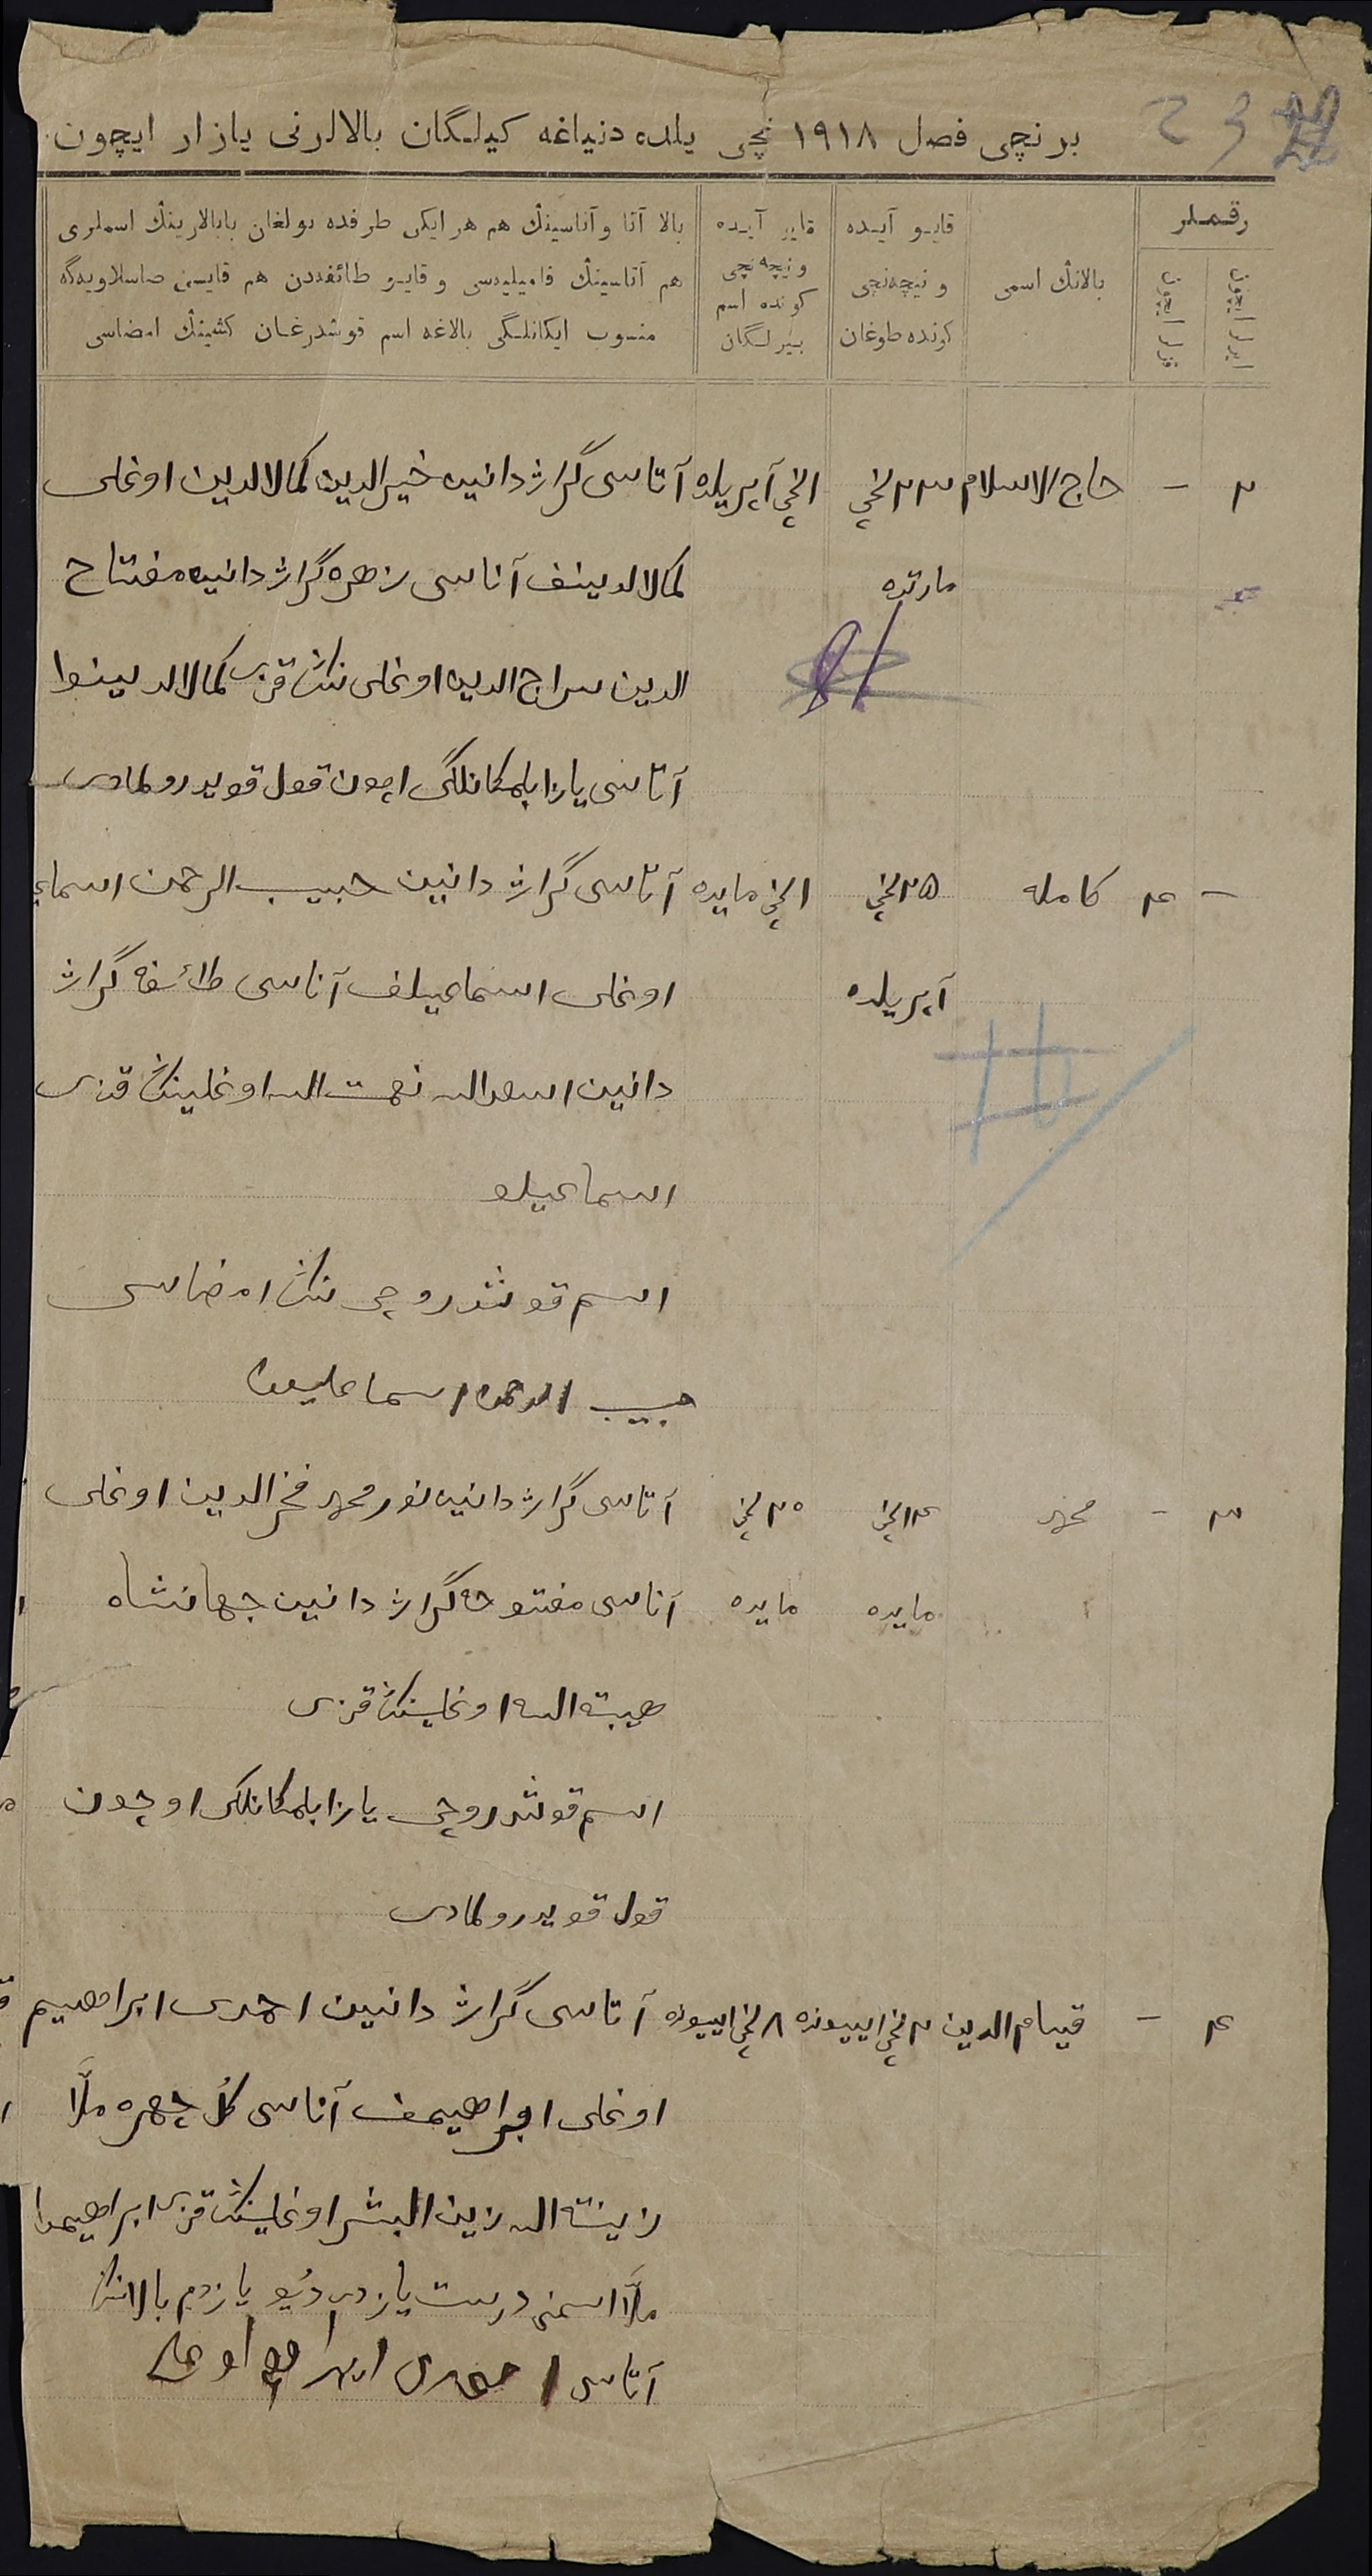 برنچی فصل ۱۹۱۸ نچی یلده دنیاغه کیلگان بالالرنی یازار ایچون.
رقملر
بالانڭ اسمی
قایو آیده ونیچه‌نچی کونده طوغان
قایو آیده ونیچه‌نچی کونده اسم بیرلگان
بالا آتا وآناسینڭ هم هر ایکی طرفده بولغان بابالارینڭ اسملری
هم آتاسینڭ فامیلیه‌سی وقایو طائفه‌دن هم قایسی
منسوب ایکانلگی بالاغه اسم قوشدرغان کشینڭ امضاسی
۲ - حاج الاسلام ۲۳ نچی ۱ نچی آپریلده آتاسی گراژدانین خیرالدین کمالالدین اوغلی
مارتده کمالالدینف آناسی زهره گراژدانین مفتاح
الدین سراج الدین اوغلی ننڭ قزی کمالالدینوا
آتاسی یازا بلمکانلگی اچون قول قویدرولمادی
- ۴ کامله ۲۵ نچی ۱ نچی مایده آتاسی گراژدانین حبیب الرحمن اسماعیل
آپریلده اوغلی اسماعیلف آناسی طائفه گراژ
دانین اسدالله نعمت الله اوغلینڭ قزی
اسماعیلو
اسم قوشدروچی ننڭ امضاسی
حبیب الرحمن اسماعلیف
۳ - محمد ۱۴ نچی ۲۰ نچی آتاسی گراژدانین نورمحمد فخرالدین اوغلی
مایده مایده آناسی مفتوحه گراژدانین جهانشاه
هیبة الله اوغلینڭ قزی
اسم قوشدروچی یازا بلمکانلگی اوچون
قول قویدرولمادی
۴ - قیام الدین ۲ نچی اییونده ۸ نچی اییونده آتاسی گراژدانین احمدی ابراهیم
اوغلی ابراهیمف آناسی گل چهره ملّا
زینة الله زین البشر اوغلینڭ قزی ابراهیموا
ملّا اسمنی درست یازدی دیو یازدم بالاننڭ
آتاسی احمدی ابراهیم اوغلی